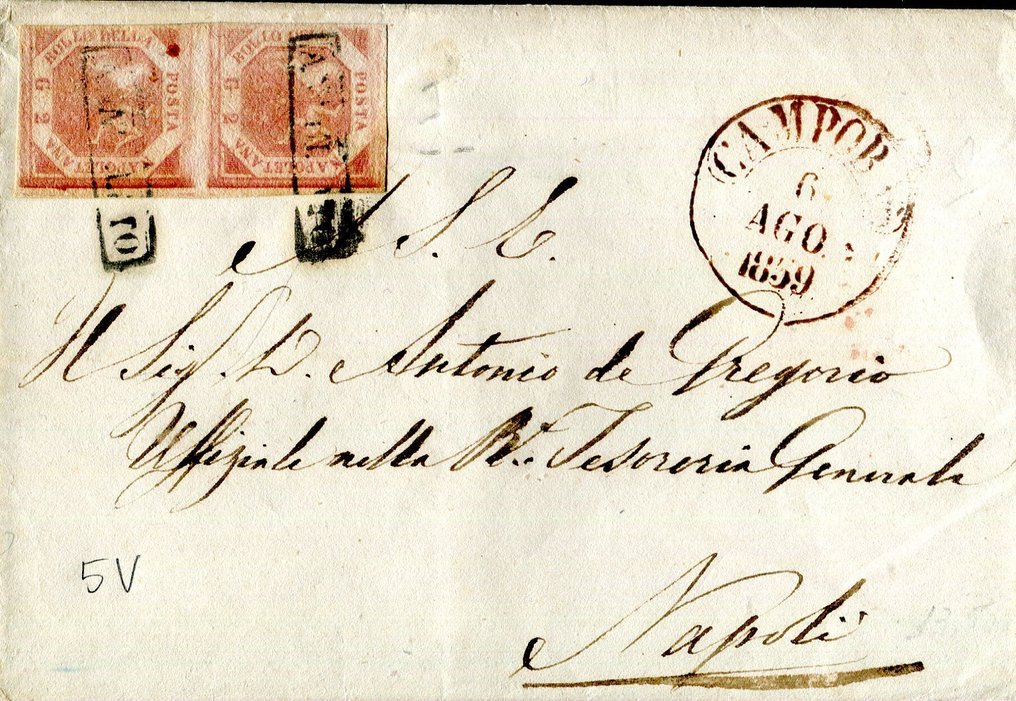 BOLLO DELLA
POSTA
NAPOLETANA
G 2
BOLLO
POSTA
NAPOLETANA
G 2
6
AGO.
1859
A S. E.
Il Sig. D. Antonio de Gregorio
Uffiziale nella Rl. Tesoreria Generale
Napoli
5V